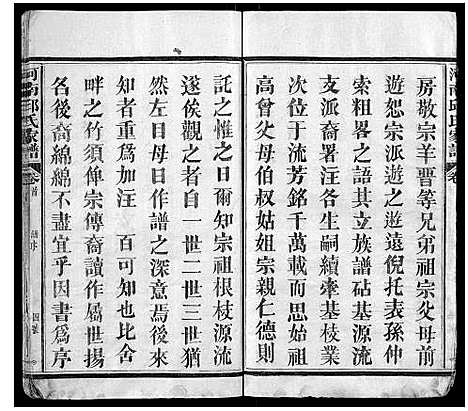 房敬宗羊晋等兄弟祖宗父母前
遊恕宗派遊之遊遠倪托表孫仲
索粗畧之語其立族譜砧基祖宗
支派裔汪各生嗣續牽基枝業
次位于流芳銘千萬世之歷歷
高曾父母伯叔姑姐宗親仁德則
託之惟之日爾知宗祖根枝源流
遂俟觀之者自一世二世三世猶
然左日母日作譜之深意焉後世
知者重為加注 百可知也比舍
畔之竹須俾宗傳裔讀作屬世揚
名後裔綿綿不盡宜乎因書爲序
河南邱氏家譜 卷首